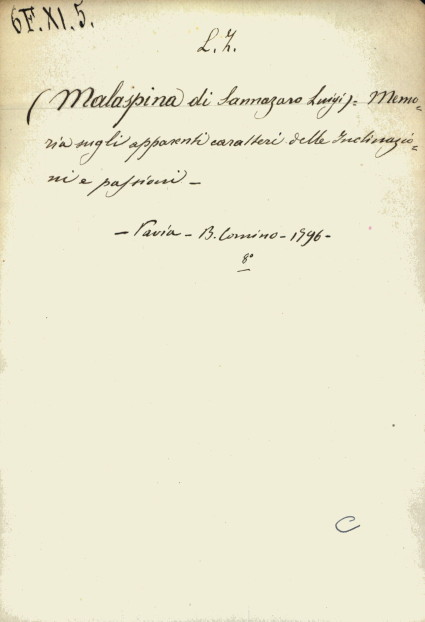 6F.XI.5.
L. Z.
(Malaspina di Sannazaro Luigi). Memo-
ria sugli apparenti caratteri delle Inclinazio-
ni e passioni -
- Pavia - B. Comino - 1796 -
8°
C